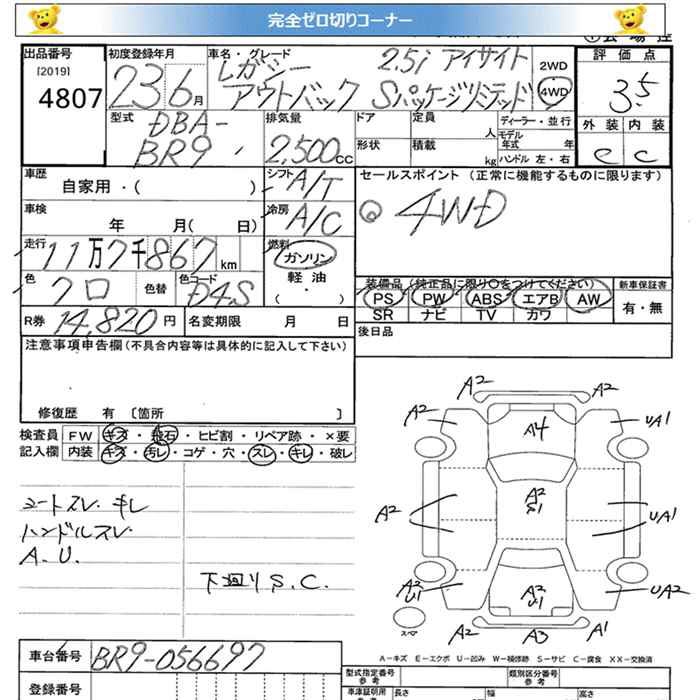 完全ゼロ切りコーナー
出品番号
[2019]
4807
初度登録年月
23 6月
車名・グレード
レガシー 2.5i アイサイト
アウトバック Sパッケージリミテッド
2WD
4WD
評価点
3.5
外装 内装
e c
型式
DBA-
BR9
排気量
2,500cc
ドア 定員 人
形状 積載 kg
ディーラー・並行
モデル年式 年
ハンドル 左・右
車歴
自家用・( )
シフト
A/T
セールスポイント (正常に機能するものに限ります)
◎ 4WD
車検
年 月( 日)
冷房
A/C
走行
11万7千867km
燃料
ガソリン
軽油
( ・ )
色
クロ
色替
色コード
D4S
装備品 (純正品に限り○をつけてください)
PS PW ABS エアB AW
SR ナビ TV カワ
新車保証書
有・無
R券 14,820円
名変期限 月 日
後日品
注意事項申告欄(不具合内容等は具体的に記入して下さい)
修復歴 有 〔箇所 〕
検査員 FW キズ・飛石・ヒビ割・リペア跡・×要
記入欄 内装 キズ・汚レ・コゲ・穴・スレ・キレ・破レ
シートスレ・キレ
ハンドルスレ
A.U.
下廻りS.C.
A2 A2
A2 A4 UA1
A2 A2 S1 UA1
A2 U1 A2 U1 UA2
スペア
A2 A3 A1
A-キズ E-エクボ U-凹み W-補修跡 S-サビ C-腐食 XX-交換済
車台番号 BR9-056697
登録番号
型式指定番号
参考
類別区分番号
参考
車庫証明用
長さ 幅 高さ